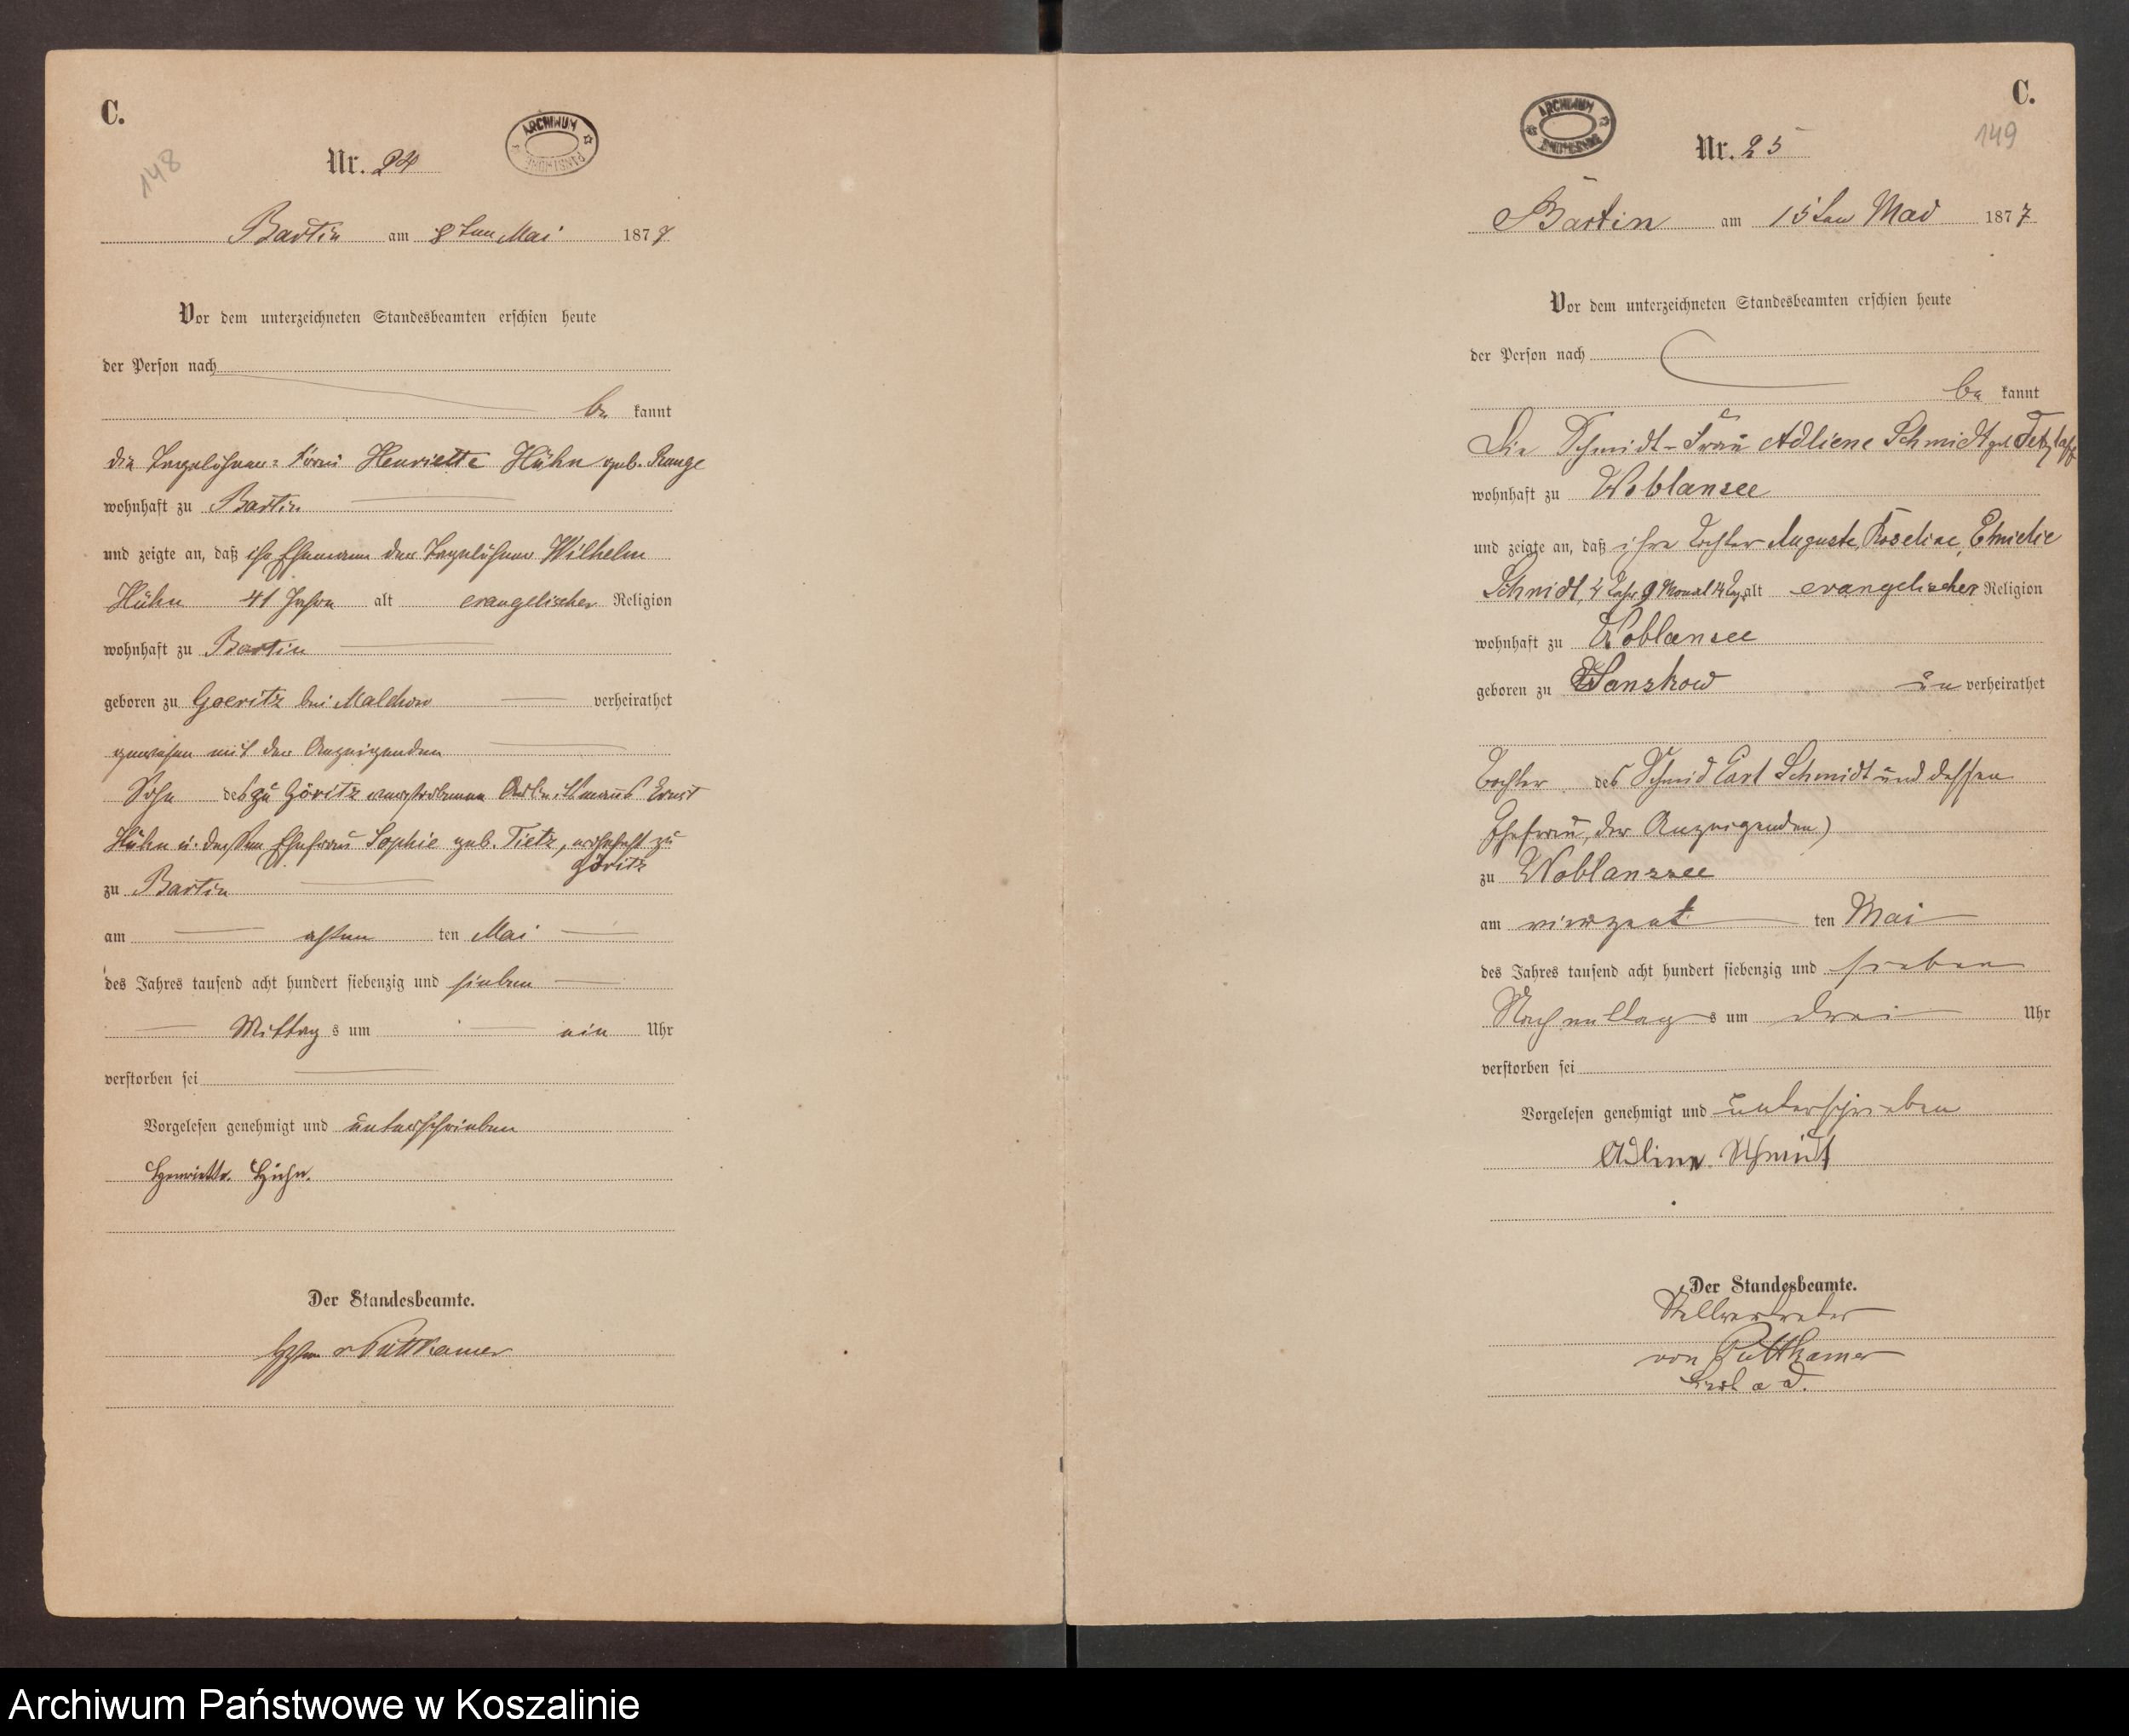 C.
148
ARCHIWUM PAŃSTWOWE
Nr. 24
Bartin am 8ten Mai 1877
Vor dem unterzeichneten Standesbeamten erschien heute
der Person nach
be kannt
die Tagelöhner= frau Henriette Hühn geb. Runge
wohnhaft zu Bartin
und zeigte an, daß ihr Ehemann der Tagelöhner Wilhelm
Hühn 41 Jahre alt evangelischer Religion
wohnhaft zu Bartin
geboren zu Goeritz bei Malchow verheirathet
gewesen mit der Anzeigenden
Sohn des zu Göritz verstorbenen Ernst
Hühn u. dessen Ehefrau Sophie geb. Tietz, wohnhaft zu
Göritz
zu Bartin
am achten ten Mai
des Jahres tausend acht hundert siebenzig und sieben
Mittag s um ein Uhr
verstorben sei
Vorgelesen genehmigt und unterschrieben
Henriette Hühn.
Der Standesbeamte.
v Puttkamer
C.
149
ARCHIWUM
Nr. 25
Bartin am 15ten Mai 1877
Vor dem unterzeichneten Standesbeamten erschien heute
der Person nach
be kannt
Die Schmidt-Frau Adliene Schmidt geb Tetzlaff
wohnhaft zu Woblansee
und zeigte an, daß ihre Tochter Auguste, Roseline, Emielie
Schmidt, Jahr 9 Monat 14 Tage alt evangelischer Religion
wohnhaft zu Woblansee
geboren zu Wanskow un verheirathet
Tochter des Schmid Carl Schmidt und dessen
Ehefrau, der Anzeigenden)
zu Woblansee
am vierzent ten Mai
des Jahres tausend acht hundert siebenzig und sieben
Nachmittag s um drei Uhr
verstorben sei
Vorgelesen genehmigt und unterschrieben
Adline Schmidt
Der Standesbeamte.
Stellvertreter
von Puttkamer
a D.
Archiwum Państwowe w Koszalinie